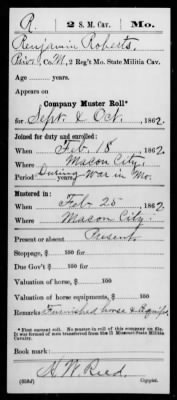 R. 2 S. M. Cav. Mo.
Benjamin Roberts,
Priv., Co. M, 2 Reg't Mo. State Militia Cav.
Age years.
Appears on
Company Muster Roll*
for Sept & Oct, 1862.
Joined for duty and enrolled:
When Feb. 18, 1862.
Where Macon City.
Period During war in Mo. years.
Mustered in:
When Feb 25, 1862.
Where Macon City.
Present or absent Present
Stoppage, $ 100 for
Due Gov't $ 100 for
Valuation of horse, $ 100
Valuation of horse equipments, $ 100
Remarks: Furnished horse & Equip's
*First current roll. No muster-in roll of this company on file.
It was formed of men transferred from the 11 Missouri State Militia
Cavalry.
Book mark:
H. W. Reed.
(858d) Copyist.